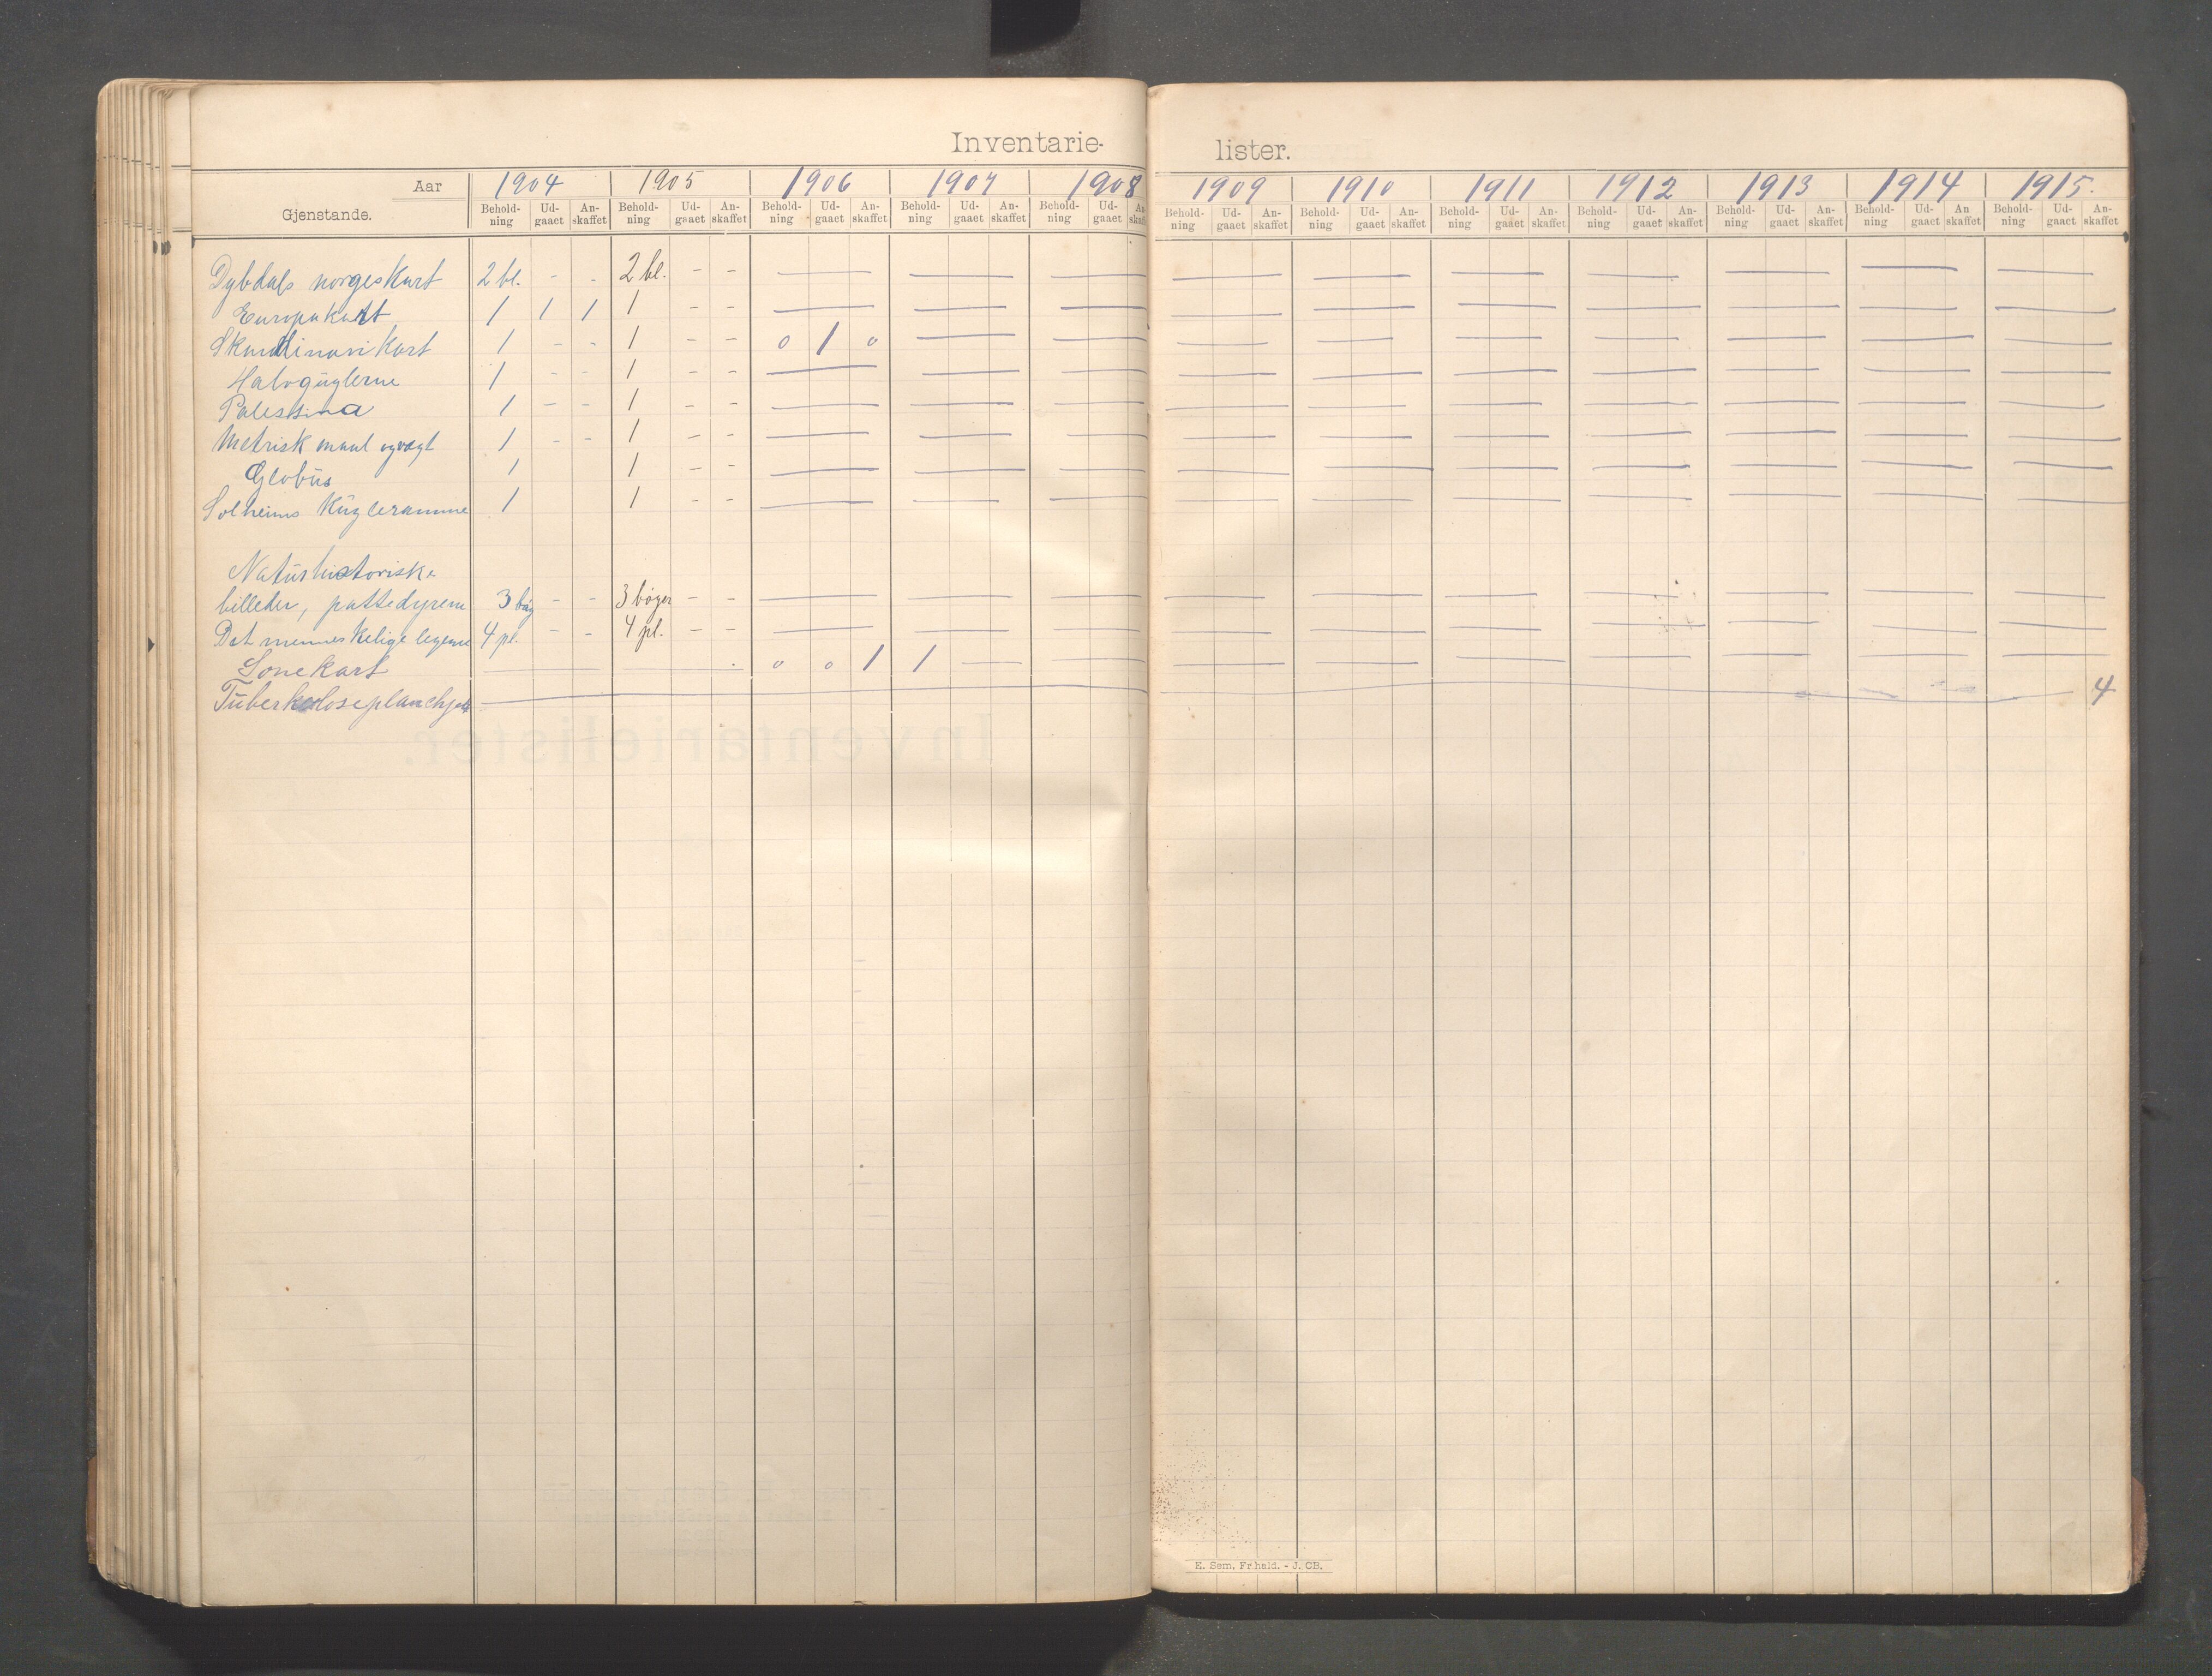 Inventarie- lister.
Aar 1904 1905 1906 1907 1908 1909 1910 1911 1912 1913 1914 1915.
Gjenstande. Behold-ning Ud-gaaet An-skaffet Behold-ning Ud-gaaet An-skaffet Behold-ning Ud-gaaet An-skaffet Behold-ning Ud-gaaet An-skaffet Behold-ning Ud-gaaet An-skaffet Behold-ning Ud-gaaet An-skaffet Behold-ning Ud-gaaet An-skaffet Behold-ning Ud-gaaet An-skaffet Behold-ning Ud-gaaet An-skaffet Behold-ning Ud-gaaet An-skaffet Behold-ning Ud-gaaet An skaffet Behold-ning Ud-gaaet An-skaffet
Dybdals norgeskart 2 bl. - - 2 bl. - -
Europakart 1 1 1 1 - -
Skandinavikart 1 - - 1 - - 0 1 0
Halvkuglerne 1 - - 1 - -
Palestina 1 - - 1 - -
Metrisk maal og vægt 1 - - 1 - -
Globus 1 1 - -
Solheims Kugleramme 1 1 - -
Naturhistoriske
billeder, pattedyrene 3 bøg - - 3 bøger - -
Det menneskelige legeme 4 pl. - - 4 pl. - -
Sonekart 0 0 1 1
Tuberkuloseplancher 4
E. Sem, Fr.hald. - J. CB.